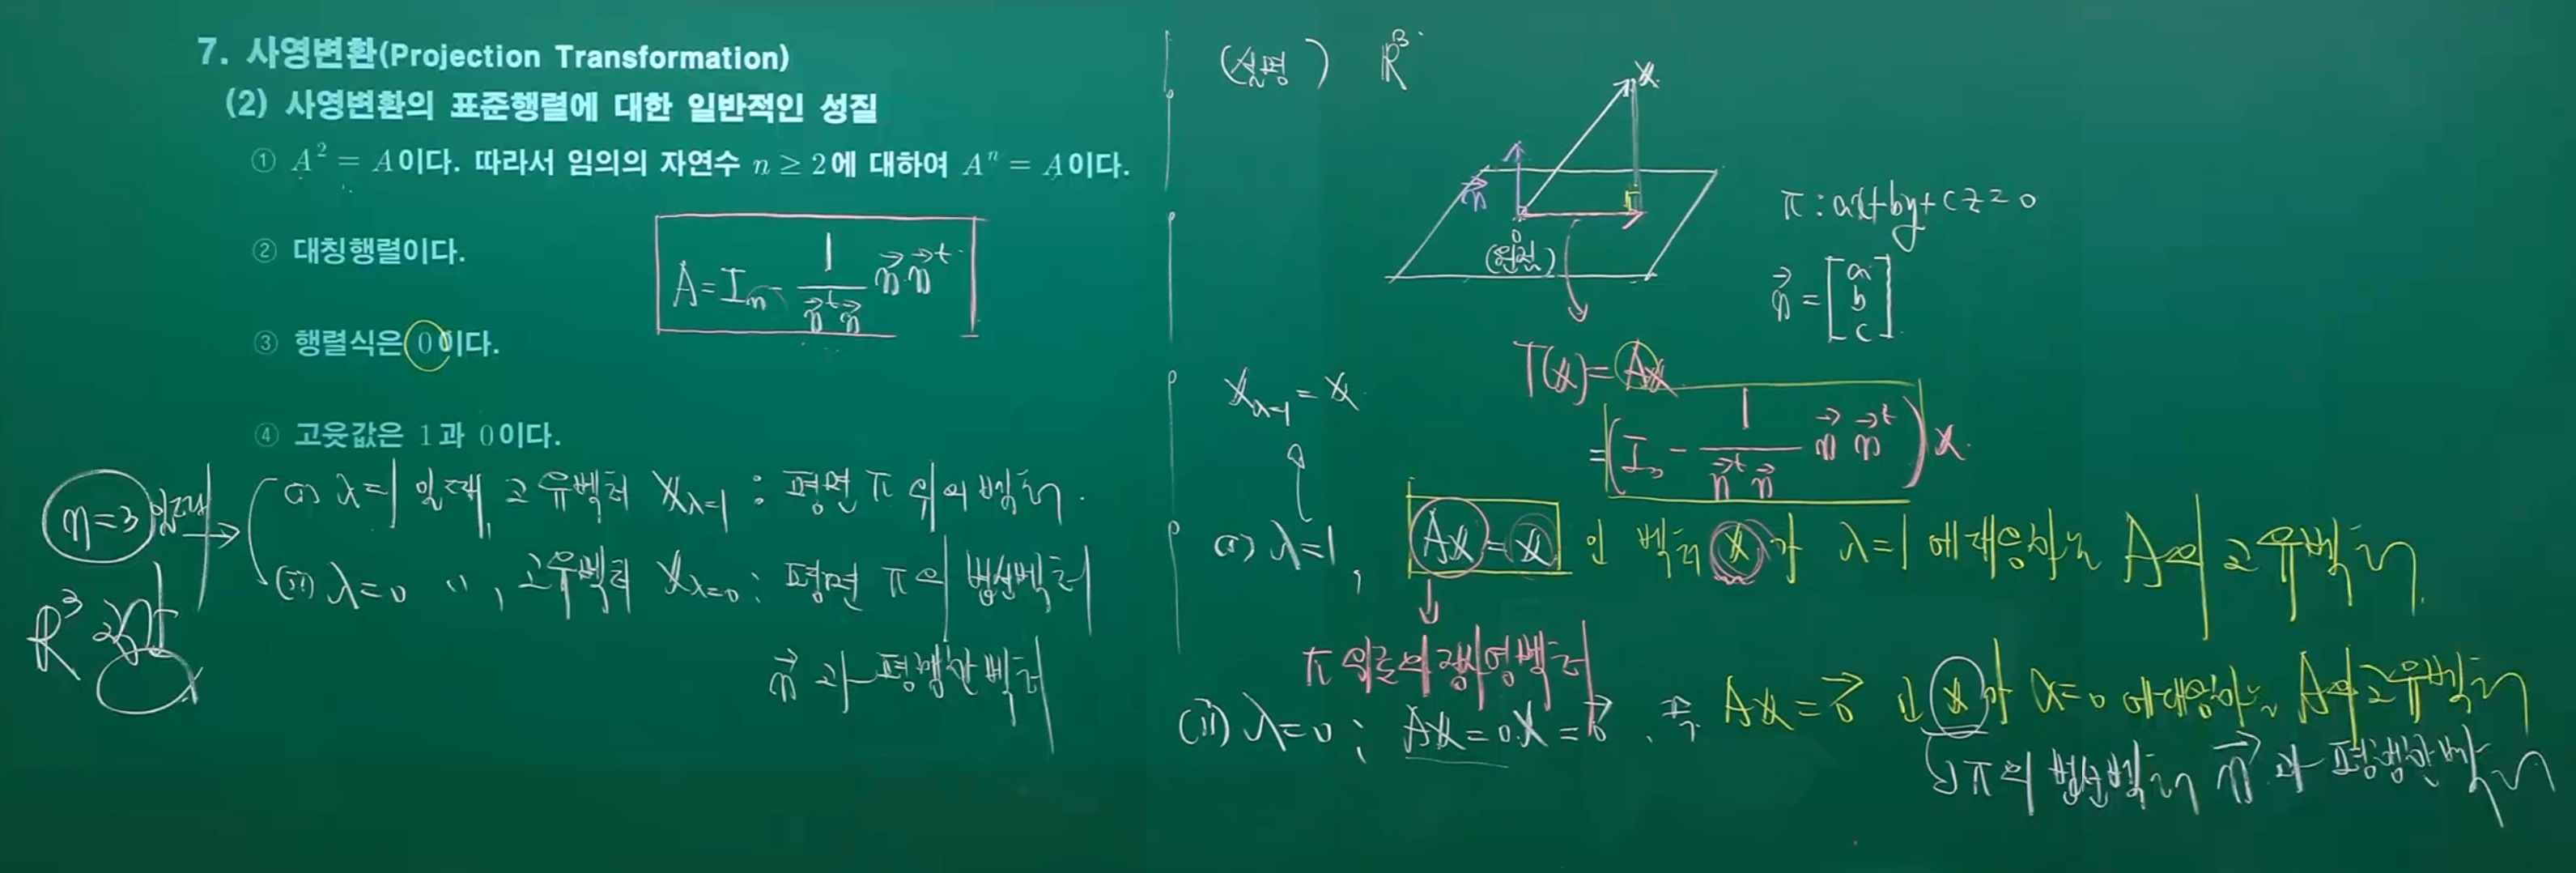 7. 사영변환(Projection Transformation)
(2) 사영변환의 표준행렬에 대한 일반적인 성질
① A² = A이다. 따라서 임의의 자연수 n ≥ 2에 대하여 Aⁿ = A이다.
② 대칭행렬이다.
A = Iₙ - 1/(n⃗ᵗn⃗) n⃗·n⃗ᵗ
③ 행렬식은 0이다.
④ 고윳값은 1과 0이다.
n=3 일때
R³ 공간
(i) λ=1 일 때, 고유벡터 X_λ=1 : 평면 π 위의 벡터.
(ii) λ=0 〃, 고유벡터 X_λ=0 : 평면 π의 법선벡터
n⃗과 평행한 벡터
(설명) R³
X
n⃗
0
(원점)
π : ax+by+cz=0
n⃗ = [a b c]
T(X) = AX
= (I₃ - 1/(n⃗ᵗn⃗) n⃗ n⃗ᵗ) X.
X_λ=1 = X
(i) λ=1, AX = X 인 벡터 X가 λ=1에 대응하는 A의 고유벡터.
π 위로의 정사영벡터
(ii) λ=0 ; AX = 0·X = 0⃗. 즉, AX = 0⃗ 인 X가 λ=0에 대응하는 A의 고유벡터
π의 법선벡터 n⃗과 평행한 벡터